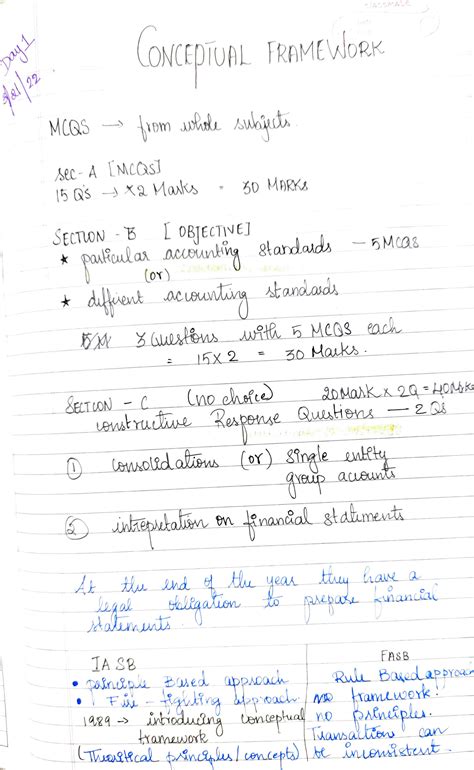 CLASSMATE
Day 1
CONCEPTUAL FRAMEWORK
MCQS → from whole subjects.
Sec - A [MCQS]
15 Q's → x2 Marks = 30 MARKS
SECTION - B [OBJECTIVE]
★ particular accounting standards — 5 MCQS
(or)
★ different accounting standards
3 Questions with 5 MCQS each
= 15 x 2 = 30 Marks.
SECTION - C (no choice) 20 Mark x 2Q = 40 Mks
constructive Response Questions — 2 Qs
① consolidations (or) Single entity
group accounts
② intrepretation on financial statements
At the end of the year they have a
legal obligation to prepare financial
statements.
IASB
• principle Based approach
• Fire - fighting approach
1989 → introducing conceptual
framework
(Theoritical principles/concepts)
FASB
Rule Based approach
no framework.
no principles.
Transaction can
be inconsistent.